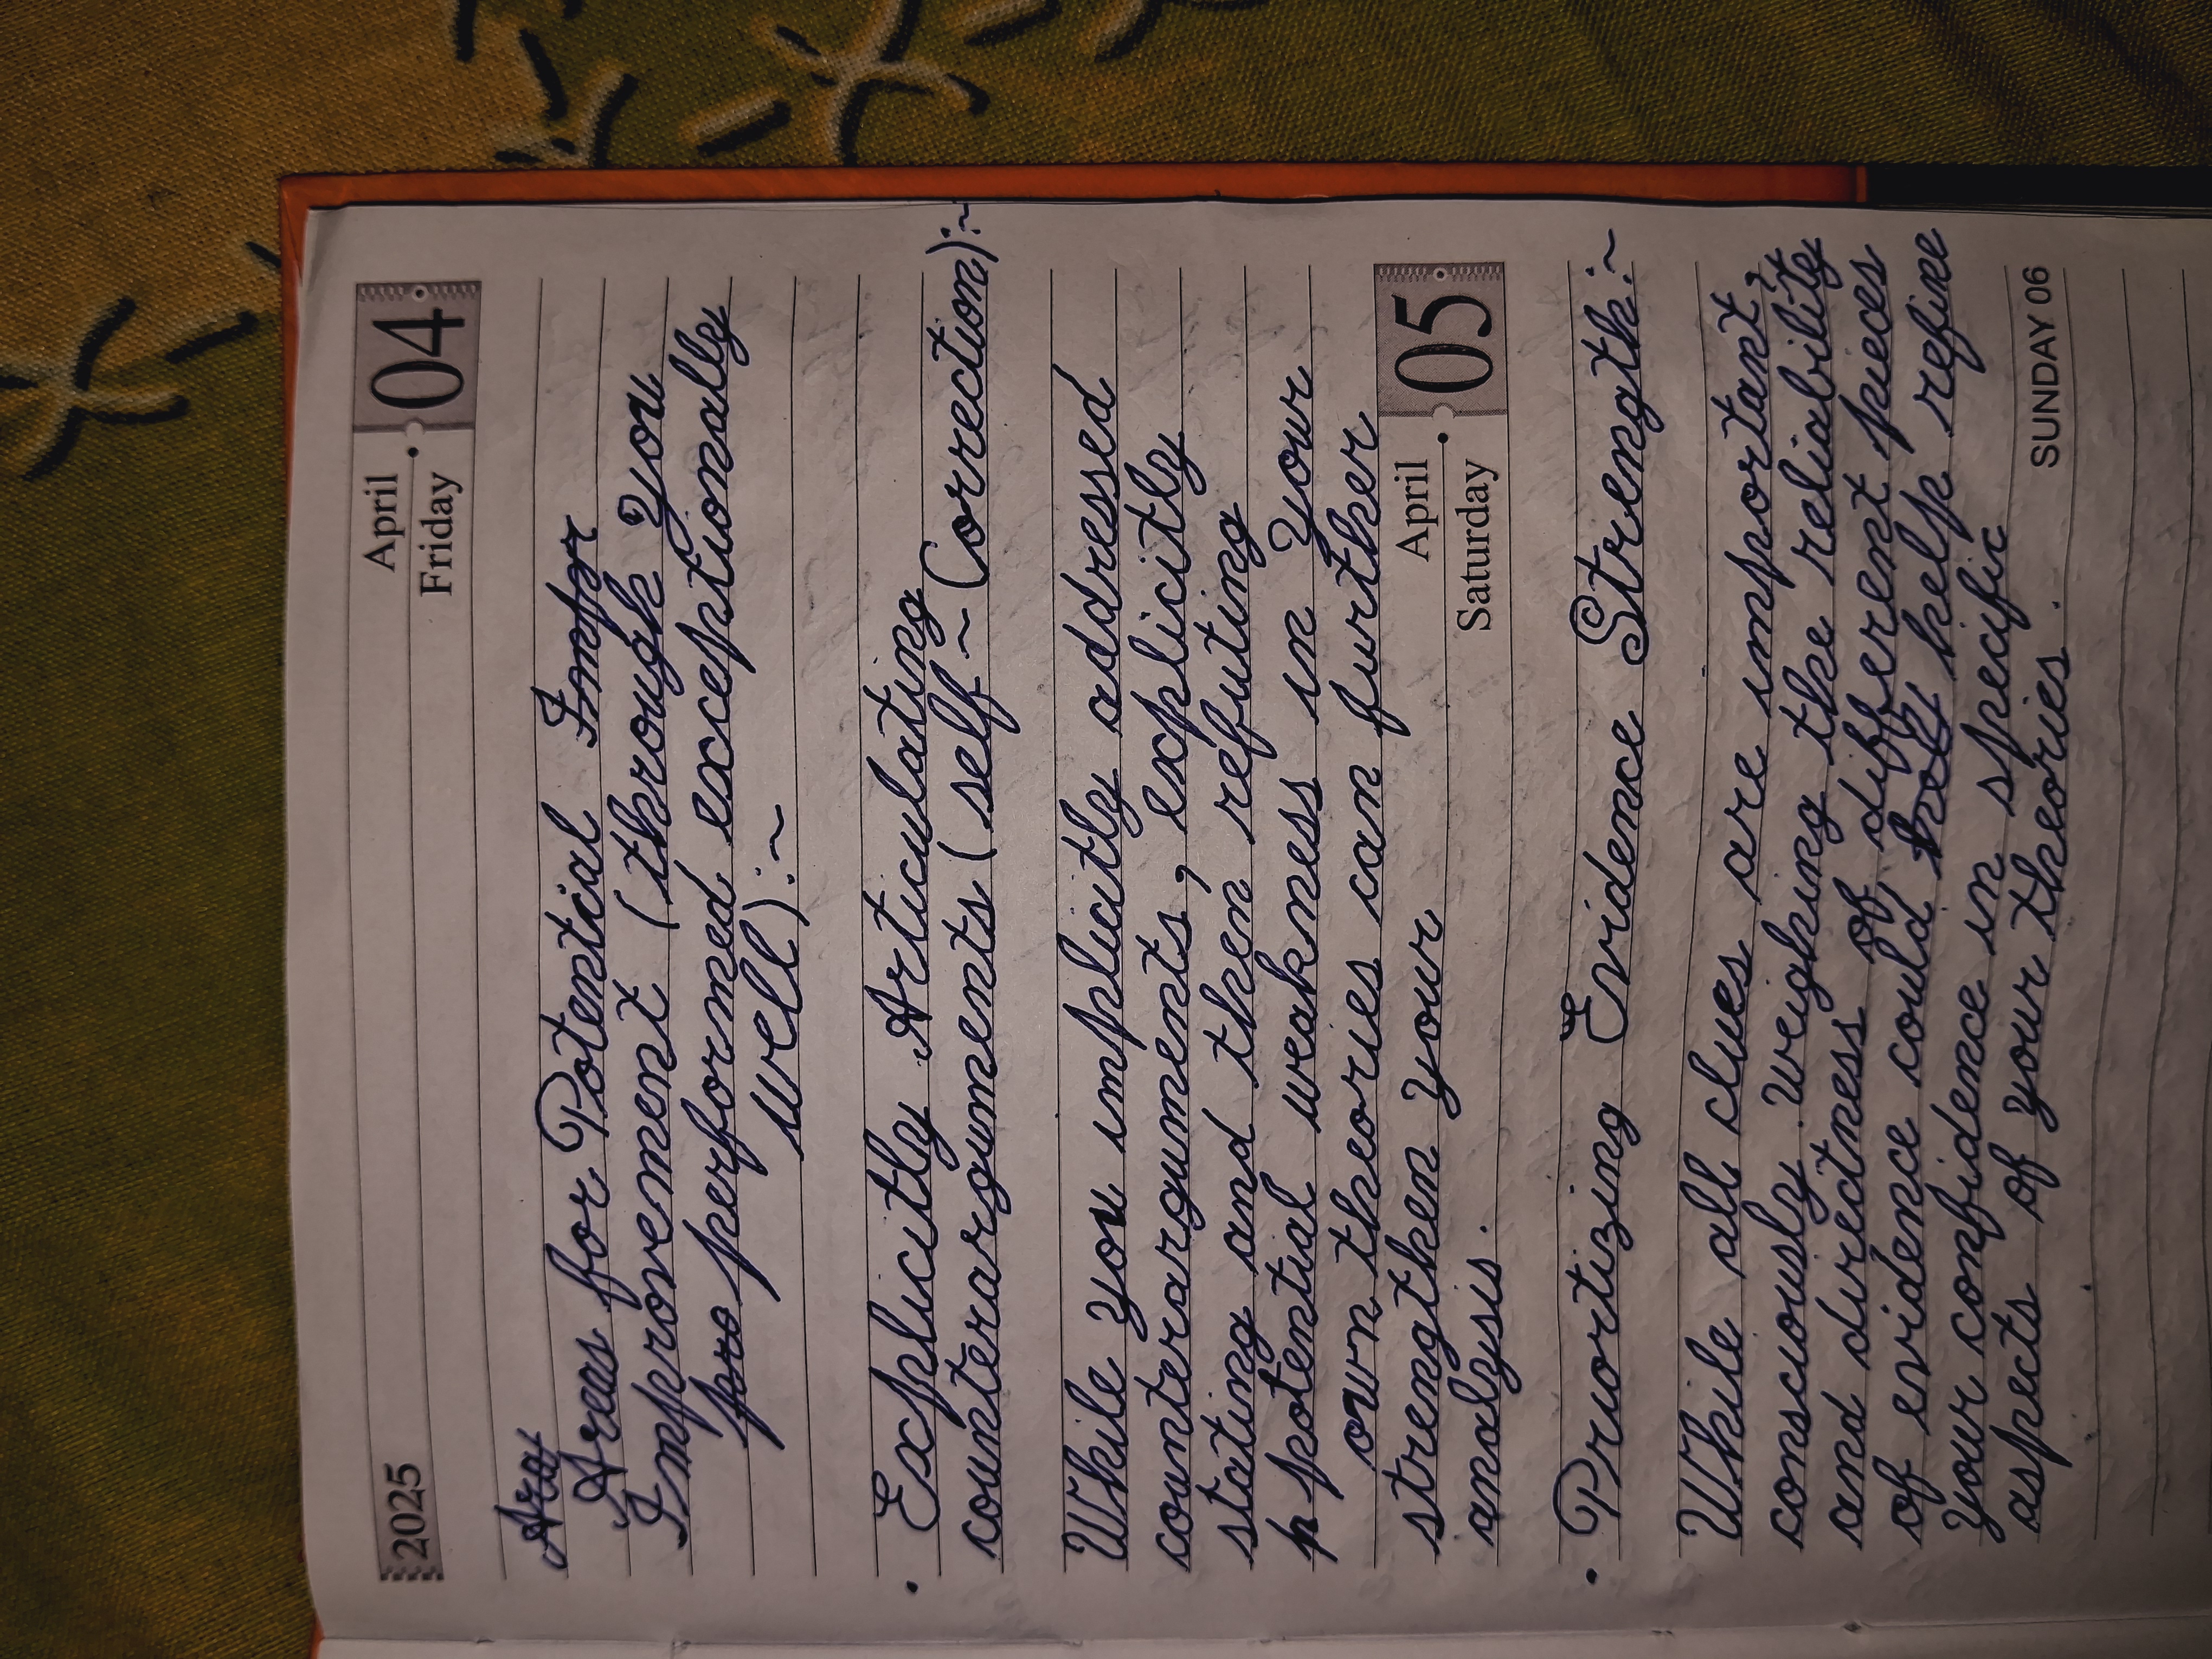 2025
April
04
Friday
Areas for Potential
Improvement (through you
performed exceptionally
well):~
• Explicitly Articulating
counterarguments (self ~ Correction):~
While you implicitly addressed
counterarguments, explicitly
stating and then refuting
potential weakness in your
own theories can further
strengthen your
analysis.
April
05
Saturday
• Priortizing Evidence Strength:~
While all clues are important,
consciously weighing the reliability
and directness of different pieces
of evidence could help refine
your confidence in specific
aspects of your theories.
SUNDAY 06